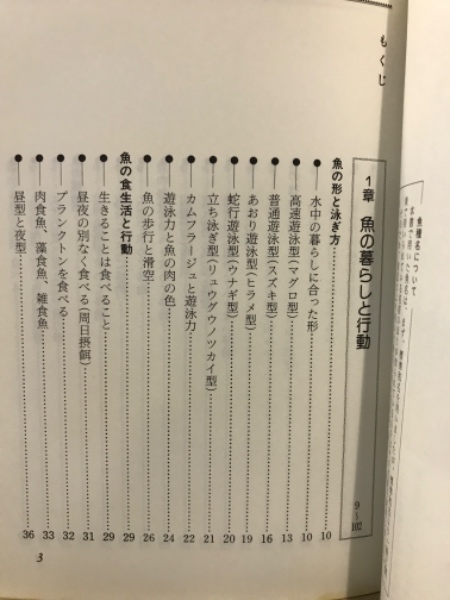 もくじ
1章 魚の暮らしと行動 9〜102
魚の形と泳ぎ方 10
● 水中の暮らしに合った形 10
● 高速遊泳型(マグロ型) 13
● 普通遊泳型(スズキ型) 16
● あおり遊泳型(ヒラメ型) 19
● 蛇行遊泳型(ウナギ型) 20
● 立ち泳ぎ型(リュウグウノツカイ型) 21
● カムフラージュと遊泳力 22
● 遊泳力と魚の肉の色 24
● 魚の歩行と滑空 26
魚の食生活と行動 29
● 生きることは食べること 29
● 昼夜の別なく食べる(周日摂餌) 31
● プランクトンを食べる 32
● 肉食魚、藻食魚、雑食魚 33
● 昼型と夜型 36
3
魚種名について